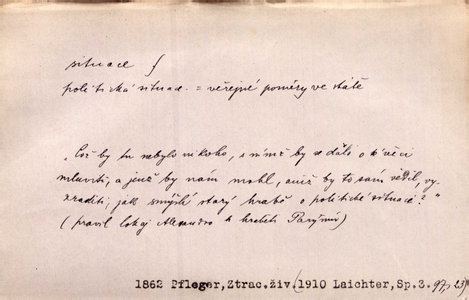 situace f
politická situac. = veřejné poměry ve státě
„Což by tu nebylo nikoho, s nímž by se dalo o té věci
mluviti, a jenž by nám mohl, aniž by to sám věděl, vy-
zraditi, jak smýšlí starý hrabě o politické situaci?"
(pravil lokaj Alexandro k hraběti Parýmu)
1862 Pfleger, Ztrac. živ. (1910 Laichter, Sp. 3. 97, 23)